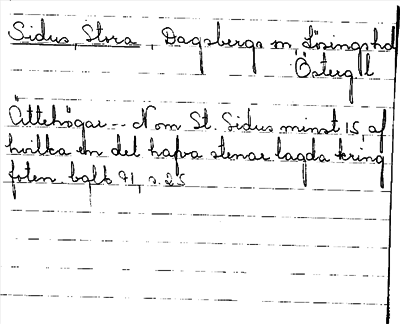 Sidus, Stora, Dagsbergs sn, Lösings hd
Österg l
Ättehögar -- N om St. Sidus minst 15, af
hvilka en del hafva stenar lagda kring
foten. bglb 91, s. 25